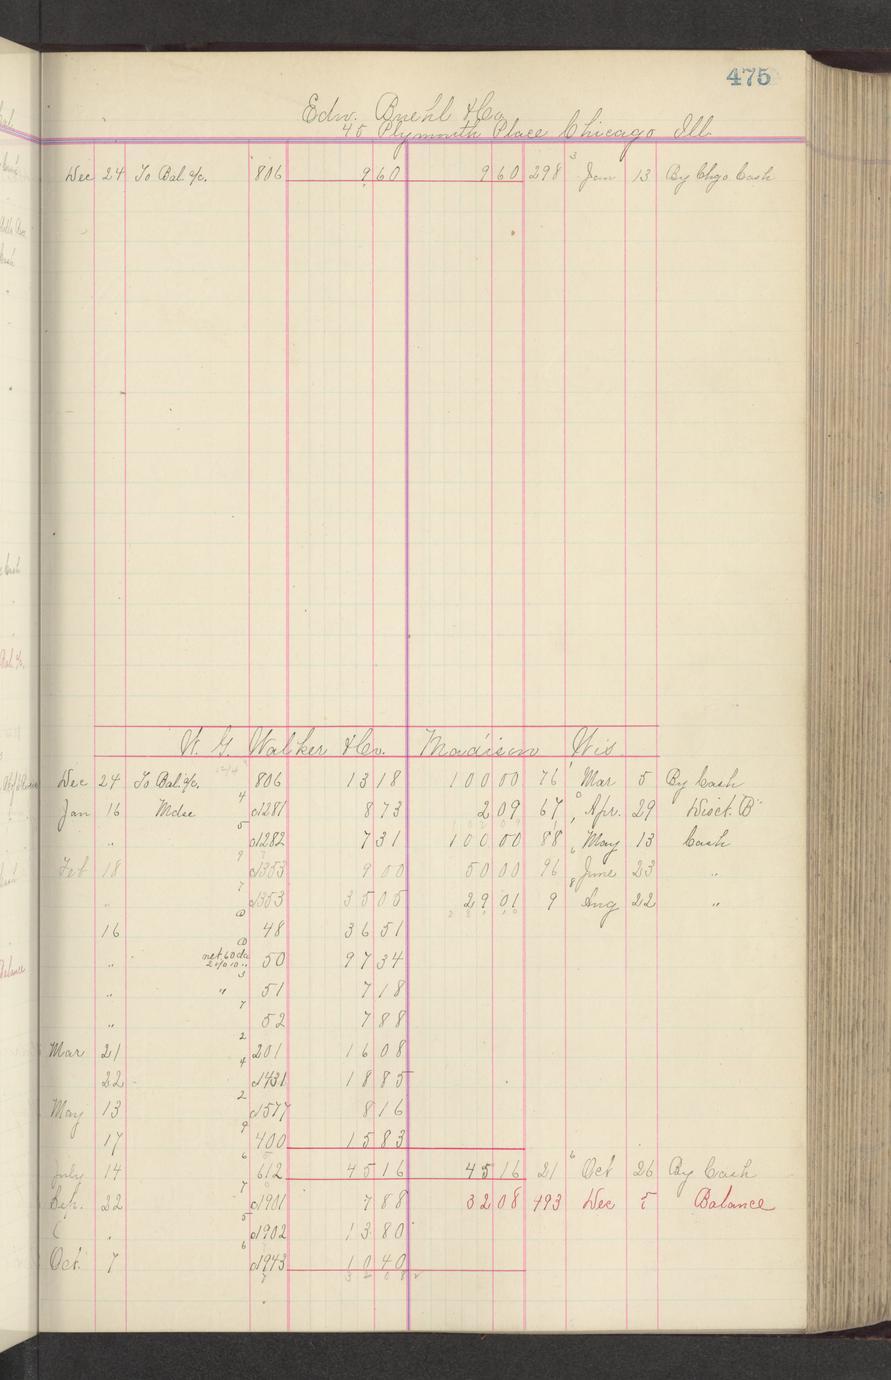 475
Edw. Buehl & Co.
45 Plymouth Place Chicago Ill.
Dec 24 To Bal. a/c. 806 9 60 9 60 298 3 Jan 13 By Chgo. Cash
W. G. Walker & Co. Madison Wis
Dec 24 To Bal. a/c. 806 13 18 100 00 76 1 Mar 5 By Cash
Jan 16 Mdse 4 d1281 8 73 2 09 67 Apr. 29 Disct. B
" 5 d1282 7 31 100 00 88 May 13 Cash
Feb 18 9 d1353 9 00 50 00 96 6 June 23 "
" 7 d1353 35 05 29 01 9 8 Aug 22 "
16 48 36 51
" net 60 da 50 97 34
" " 3 51 7 18
" 7 52 7 88
Mar 21 2 201 16 08
22 4 d1431 18 85
May 13 2 d1577 8 16
17 9 400 15 83
July 14 6 612 45 16 45 16 21 6 Oct 26 By Cash
Sep. 22 7 d1901 7 88 32 08 493 Dec 5 Balance
" 5 d1902 13 80
Oct. 7 6 d1943 10 40
32 08